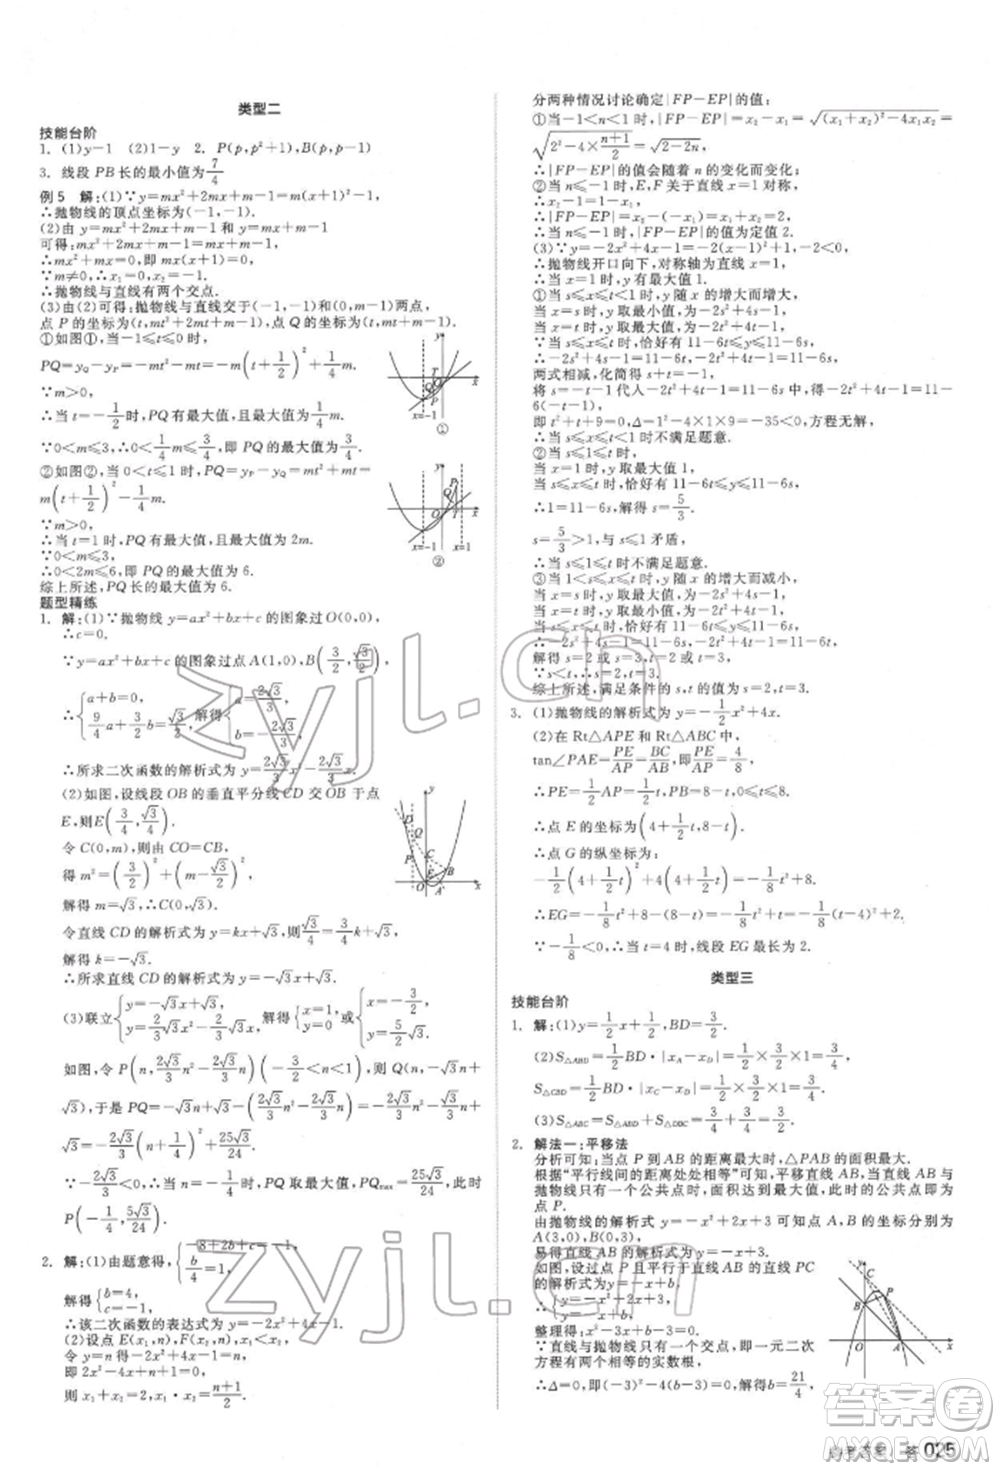 类型二
技能台阶
1. (1)y-1 (2)1-y 2. P(p,p²+1),B(p,p)
3. 线段 PB 长的最小值为 7/4
例 5 解:(1)∵y=mx²+2mx+m-1=m(x+1)²-1,
∴抛物线的顶点坐标为(-1,-1).
(2)由 y=mx²+2mx+m-1 和 y=mx+m-1
可得:mx²+2mx+m-1=mx+m-1,
∴mx²+mx=0,即 mx(x+1)=0,
∵m≠0,∴x₁=0,x₂=-1.
∴抛物线与直线有两个交点.
(3)由(2)可得:抛物线与直线交于(-1,-1)和(0,m-1)两点,
点 P 的坐标为(t,mt²+2mt+m-1),点 Q 的坐标为(t,mt+m-1).
①如图①,当-1≤t≤0 时,
PQ=y_Q-y_P=-mt²-mt=-m(t+1/2)²+1/4 m.
∵m>0,
∴当 t=-1/2 时,PQ 有最大值,且最大值为 1/4 m.
∵0<m≤3,∴0<1/4 m≤3/4,即 PQ 的最大值为 3/4.
②如图②,当 0<t≤1 时,PQ=y_P-y_Q=mt²+mt=
m(t+1/2)²-1/4 m.
∵m>0,
∴当 t=1 时,PQ 有最大值,且最大值为 2m.
∵0<m≤3,
∴0<2m≤6,即 PQ 的最大值为 6.
综上所述,PQ 的最大值为 6.
题型精练
1. 解:(1)∵抛物线 y=ax²+bx+c 的图象过点 O(0,0),
∴c=0.
∵y=ax²+bx+c 的图象过点 A(1,0),B(3/2,√3/2),
∴{a+b=0, 9/4 a+3/2 b=√3/2, 解得{a=2√3/3, b=-2√3/3.
∴所求二次函数的解析式为 y=2√3/3 x²-2√3/3 x.
(2)如图,设线段 OB 的垂直平分线 CD 交 OB 于点
E,则E(3/4,√3/4).
令 C(0,m),则由 CO=CB,
得 m²=(3/2)²+(√3/2-m)².
解得 m=√3,∴C(0,√3).
令直线 CD 的解析式为 y=kx+√3,则√3/4=3/4 k+√3,
解得 k=-√3.
∴所求直线 CD 的解析式为 y=-√3x+√3.
(3)联立{y=-√3x+√3, y=2√3/3 x²-2√3/3 x, 解得{x=1, y=0 或{x=-3/2, y=5/2 √3.
如图,令 P(n,2√3/3 n²-2√3/3 n)(-3/2<n<1),则 Q(n,-√3n+
√3),于是 PQ=-√3n+√3-(2√3/3 n²-2√3/3 n)=-2√3/3 n²-√3/3 n+√3
=-2√3/3(n+1/4)²+25√3/24.
∵-2√3/3<0,∴当 n=-1/4 时,PQ 取最大值,PQmax=25√3/24,此时
P(-1/4,5√3/24).
2. 解:(1)由题意得,{-8+2b+c=-1, b/4=1,
解得{b=4, c=-1.
∴该二次函数的解析式为 y=-2x²+4x-1.
(2)设点 E(x₁,n),F(x₂,n),
令 y=n,则-2x²+4x-1=n,
即 2x²-4x+n+1=0,
则 x₁+x₂=2,x₁x₂=(n+1)/2.
分两种情况讨论确定|FP-EP|的值:
①当-1<n<1 时,|FP-EP|=x₂-x₁=√((x₁+x₂)²-4x₁x₂)=
√(2²-4×(n+1)/2)=√(2-2n),
∴|FP-EP|的值会随着 n 的变化而变化;
②当 n≤-1 时,E,F 关于直线 x=1 对称,
∴x₂-1=1-x₁,
∴|FP-EP|=|x₂+x₁|=2.
∴当 n≤-1 时,|FP-EP|的值为定值 2.
(3)∵y=-2x²+4x-1=-2(x-1)²+1,-2<0,
∴抛物线开口向下,对称轴为直线 x=1,
∴y 有最大值 1.
①当 s≤x≤t≤1 时,y 随 x 的增大而增大,
当 x=s 时,y 取最小值,为-2s²+4s-1,
当 x=t 时,y 取最大值,为-2t²+4t-1,
∴-2s²+4s-1=11-6t,-2t²+4t-1=11-6s,
两式相减,化简得 s+t=-1,
将 s=-t-1代人-2t²+4t-1=11-6s,得-2t²+4t-1=11-
6(-t-1),
即t²+t+9=0,Δ=1²-4×1×9=-35<0,方程无解.
∴当 s≤x≤t≤1 时不满足题意.
②当 s≤1≤t 时,
当 x=1 时,y 取最大值 1,
当 s≤x≤t 时,恰好有 11-6t≤y≤11-6s,
∴1=11-6s,解得 s=5/3.
s=5/3>1,与 s≤1 矛盾.
∴当 s≤1≤t 时不满足题意.
③当 1<s≤x≤t 时,y 随 x 的增大而减小,
当 s≤x≤t 时,恰好有 11-6t≤y≤11-6s,
∴-2s²+4s-1=11-6s,-2t²+4t-1=11-6t,
解得 s=2,t=3.
综上所述,满足条件的 s,t 的值为 s=2,t=3.
3. (1)抛物线的解析式为 y=-1/2 x²+4x.
(2)在 Rt△APE 和 Rt△ABC 中,
tan∠PAE=PE/AP=BC/AB,即PE/AP=4/8,
∴PE=1/2 AP=1/2 t,0≤t≤8.
∴点 E 的坐标为(4+1/2 t,8-t).
∴点 G 的纵坐标为
-1/2(4+1/2 t)²+4(4+1/2 t)=-1/8 t²+8.
∴EG=-1/8 t²+8-(8-t)=-1/8 t²+t=-1/8(t-4)²+2.
∵-1/8<0,∴当 t=4 时,线段 EG 最长为 2.
类型三
技能台阶
1. 解:(1)y=1/2 x+1/2,BD=3/2.
(2)S△ABD=1/2 BD·|x_A-x_D|=1/2×3/2×1=3/4,
S△CBD=1/2 BD·|x_C-x_D|=1/2×3/2×2=3/2.
(3)S△ABC=S△ABD+S△DBC=3/4+3/2=9/4.
2. 解法一:平移法
分析可知:当点 P 到 AB 的距离最大时,△PAB 的面积最大.
根据“平行线间的距离处处相等”可知,平移直线 AB,AB 与
抛物线只有一个公共点时,面积达到最大值,此时的公共点即
点 P.
由抛物线的解析式为 y=-x²+2x+3可知点 A,B 的坐标分别为
易得直线 AB 的解析式为 y=-x+3,
如图,设过点 P 且平行于直线 AB 的直线 PC
的解析式为 y=-x+b,
∴{y=-x²+2x+3, y=-x+b,
整理得 x²-3x+b-3=0,
∵直线与抛物线只有一个交点,即一元二次
方程有两个相等的实数根,
∴Δ=0,即(-3)²-4(b-3)=0,解得b=21/4,
x=-1
①
x=-1
②
zyjl.cn
zyjl.cn
答案圈
MXQE.COM
参考答案 答 025